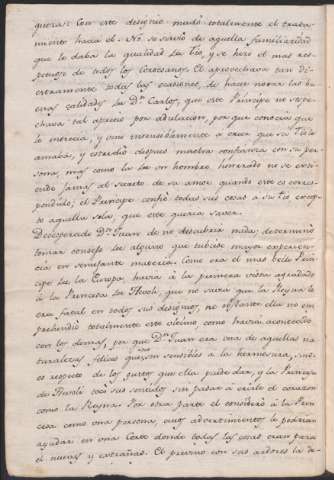 queroso. Con este designio mudó totalmente el trata-
miento hacia el. No se sirvio de aquella familiaridad
que le daba la qualidad de tio, y se hizo el mas res-
petuoso de todos los Cortesanos. El aprovechava tan di-
extramente todas las ocasiones, de hacer notar las bue-
nas calidades de Dn. Carlos, que este Principe no sospe-
chava tal aprecio por adulacion, por que conocia que
le merecia, y vino insensiblemente a creer que su tio le
amaba, y estendió despues nuestra confianza con su per-
sona, mas como la de un hombre honrrado no se esti-
ende jamas al secreto de su amor quando este es corres-
pondido; el Principe confió todas sus cosas a su tio excep-
to aquella sola, que este queria saver.
Desesperado Dn. Juan de no descubrir nada, determinó
tomar consejo de alguno que tubiese mayor experien-
cia en semejante materia. Como era el mas bello Prin-
cipe de la Europa, havia a la primera vista agradado
â la Princesa de Heboli, que no savia que la Reyna le
era fatal en todos sus designios, no obstante ella no em-
prehendió totalmente este ultimo como havia acontecido
con los demas, por que Dn. Juan era una de aquellas na-
turalezas felices que son sensibles a la hermosura, sin-
es respeto de los gustos que ella puede dar, y la Princesa
de Heboli tocó sus sentidos sin pasar à errarle el corazon
como la Reyna. Por otra parte el consideró a la Prin-
cesa como una persona, cuyos advertimientos le podrian
ayudar en una Corte donde todas las cosas eran para
el nuevas y extrañas. El previno con sus ardores la de-